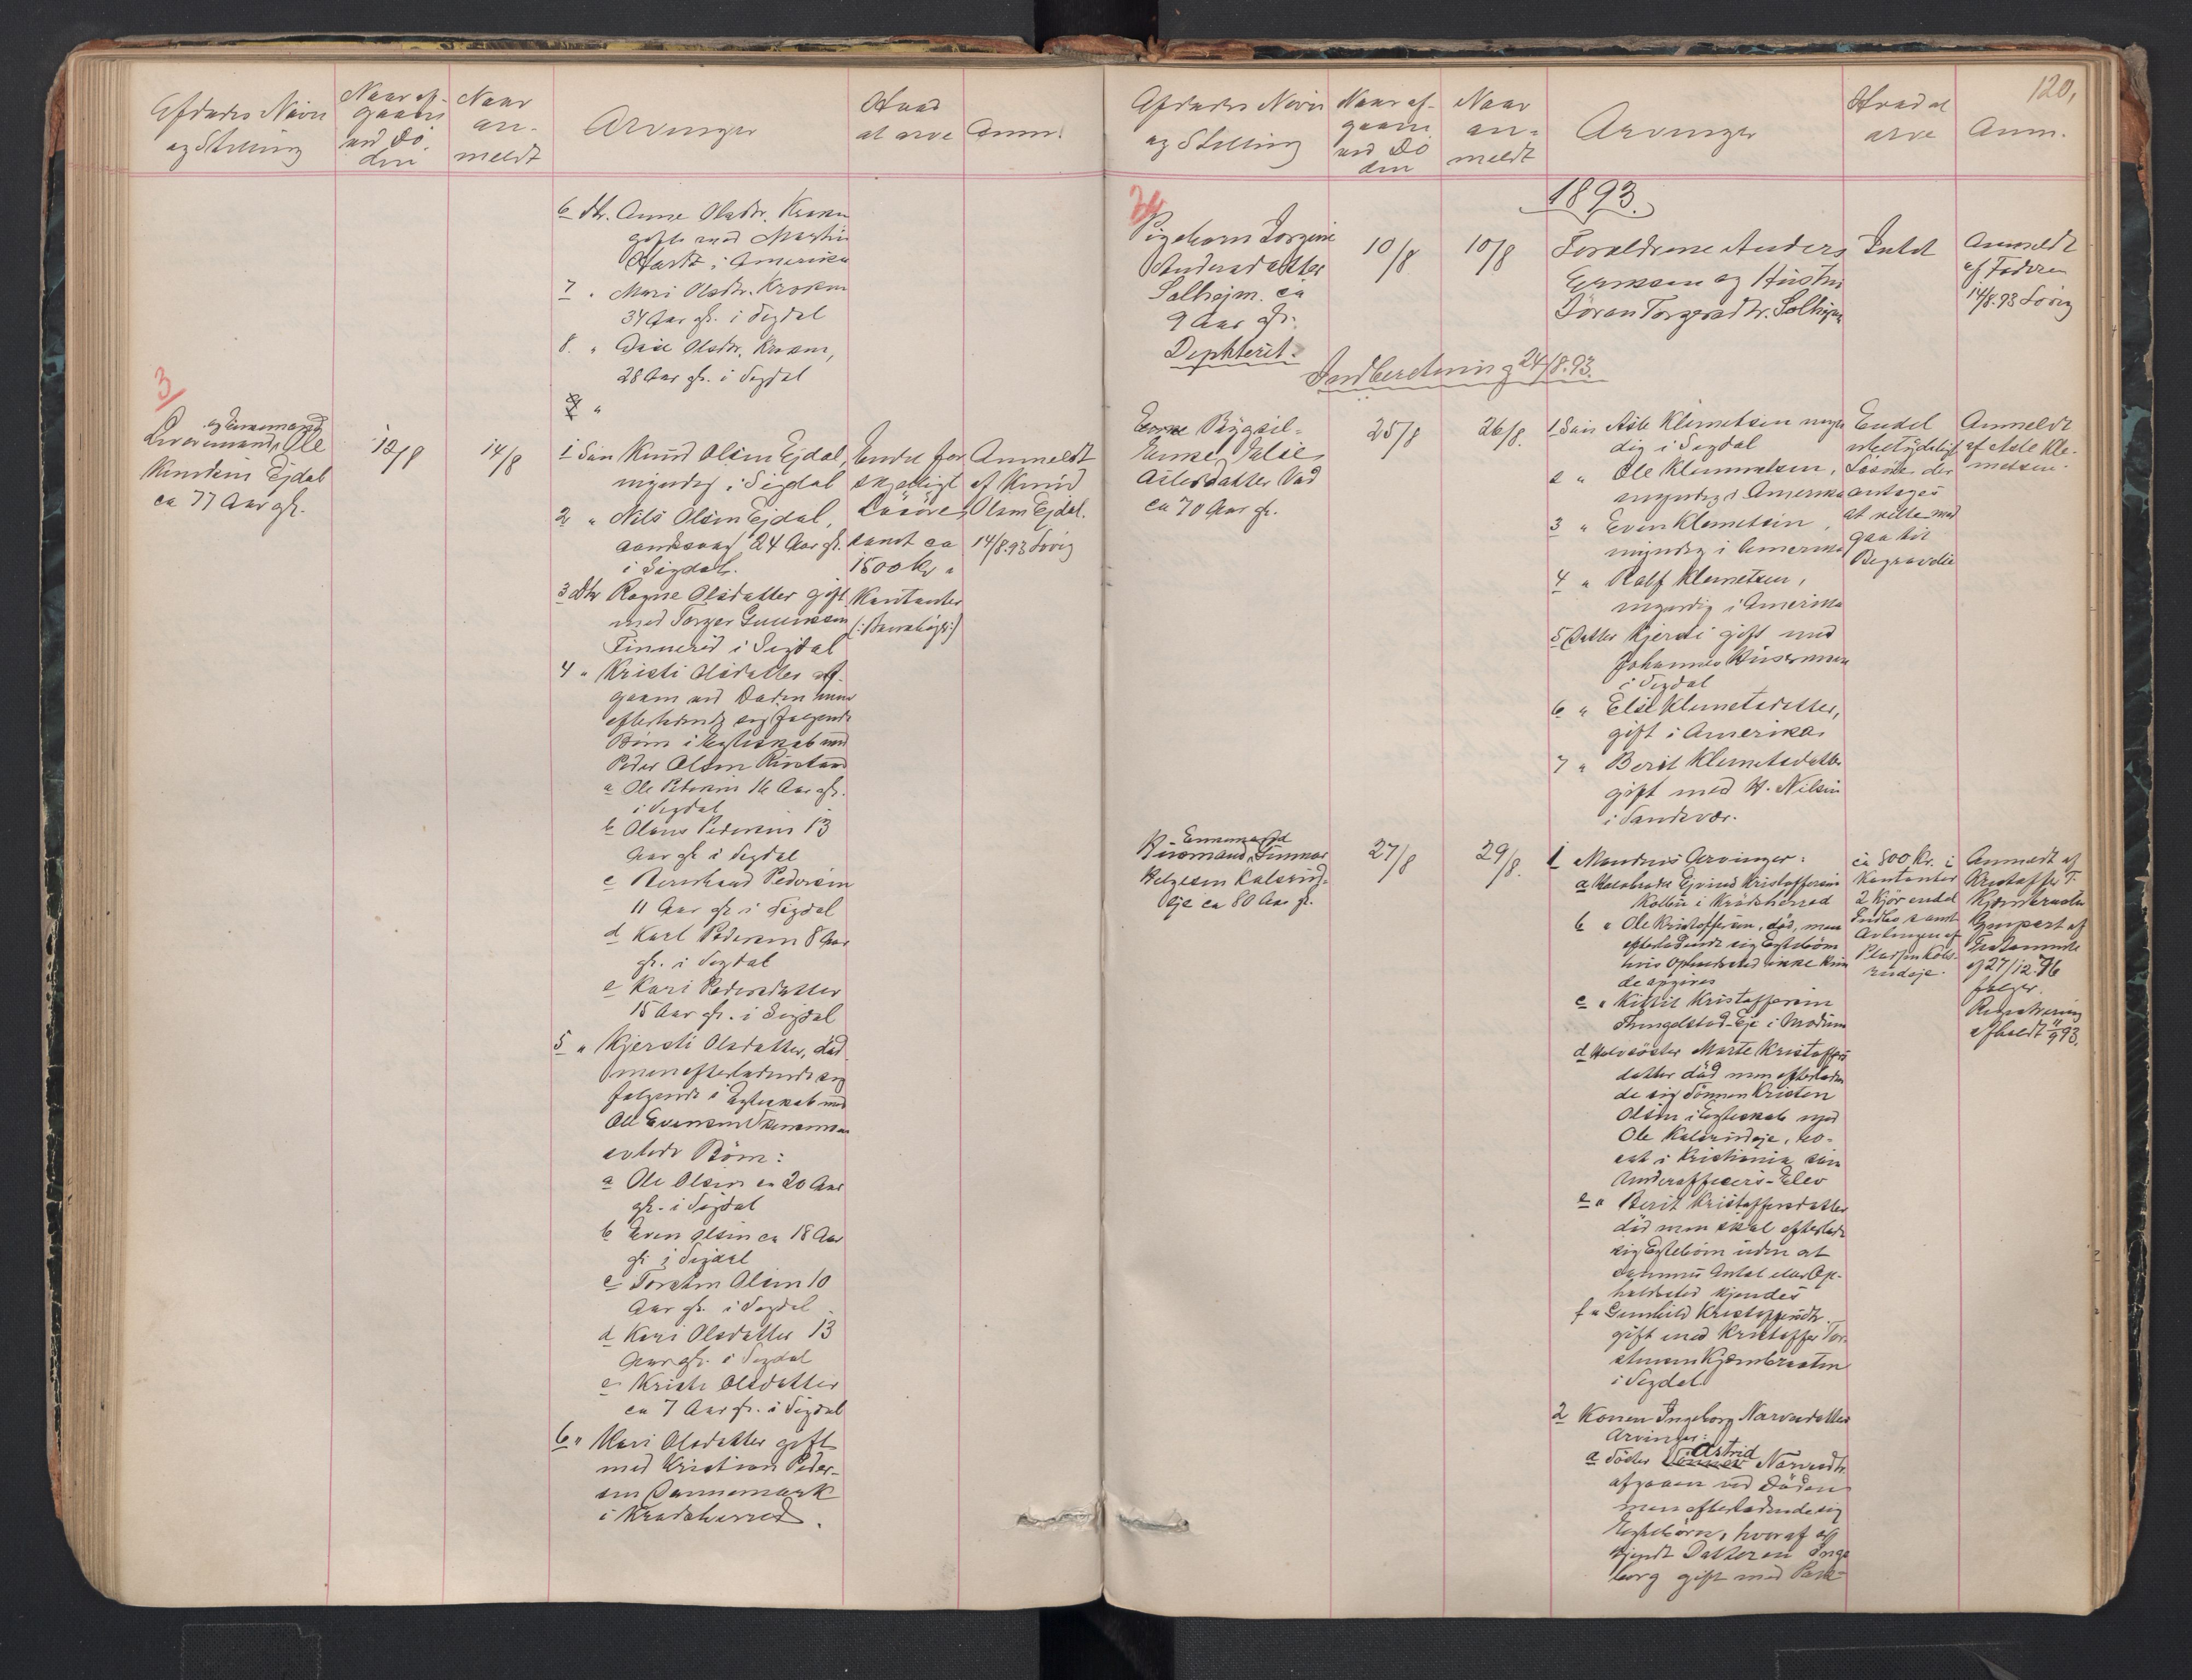 Afdødes Navn
og Stilling
Naar af-
gaaen
ved Dö-
den
Naar
an-
meldt
Arvinger
Hvad
at arve
Anm.
6 Dtr. Anne Olsdtr. Kroken
gift med Martin
i Amerika
7 " Mari Olsdtr. Kroken
34 Aar gl. i Sigdal
8. " Olsdtr. Kroken,
28 Aar gl. i Sigdal
9 "
3
og Enkemand
Ole
Knudsen Ejdal
ca 77 Aar gl.
12/8
14/8
1 Sön Knud Olsen Ejdal,
myndig i Sigdal
2 " Nils Olsen Ejdal,
aandssvag 24 Aar gl.
i Sigdal.
3 Dtr Ragne Olsdatter gift
med Torger Gulliksen
Finnerud i Sigdal
4 " Kristi Olsdatter af-
gaaen ved Döden men
efterladende sig fölgende
Börn i Egteskab med
Peder Olsen
a Ole Pedersen 16 Aar gl.
i Sigdal
b Olaus Pedersen 13
Aar gl. i Sigdal
c Bernhard Pedersen
11 Aar gl. i Sigdal
d Karl Pedersen 8 Aar
gl. i Sigdal
e Kari Pedersdatter
15 Aar gl. i Sigdal
5 " Kjersti Olsdatter, död
men efterladende sig
fölgende i Egteskab med
Ole Evensen
avlede Börn:
a Ole Olsen ca 20 Aar
gl. i Sigdal
b Even Olsen ca 18 Aar
gl. i Sigdal
c Torsten Olsen 10
Aar gl. i Sigdal
d Kari Olsdatter 13
Aar gl. i Sigdal
e Kristi Olsdatter
ca 7 Aar gl. i Sigdal
6 " Mari Olsdatter gift
med Kristian Peder-
sen Dannemark
i Krødsherred.
Endel for-
skjelligt
Lösöre
samt ca
1500 Kr i
Kontanter
Anmeldt
af Knud
Olsen Ejdal.
14/8.93
120.
Afdødes Navn
og Stilling
Naar af-
gaaen
ved Dö
den
Naar
an-
meldt
Arvinger
Hvad at
arve
Anm.
1893.
Pigebarn Torgine
Andersdatter
Solhejm. ca
9 Aar gl.
Dephterit.
10/8
10/8
Foraldrene Anders
Eriksen og Hustru
Jöran Torgersdtr. Solhejm
Intet
Anmeldt
af Faderen
14/8.93
Indberetning 24/8.93.
Bygsel-
Enke Elie
Aslesdatter Vad
ca 70 Aar gl.
25/8
26/8.
1 Sön Asle Klemetsen myn-
dig i Sigdal
2 " Ole Klemmetsen,
myndig i Amerika
3 " Even Klemetsen,
myndig i Amerika
4 " Rolf Klemetsen,
myndig i Amerika
5 Datter Kjersti gift med
Johannes
i Sigdal
6 " Elie Klemetsdatter,
gift i Amerika
7 " Berit Klemetsdatter
gift med H. Nilsen
i Sandsvær.
Endel
ubetydeligt
Lösöre der
antages
at ville med
gaa til
Begravelse
Anmeldt
af Asle Kle-
metsen.
Enkemand
Husmand Gunnar
Helgesen Kolsrud-
eje ca 80 Aar gl.
27/8
29/8.
1 Mandens Arvinger:
a Halvbroder Ejvind Kristoffersen
i Krødsherred
b " Ole Kristoffersen, död, men
efterladende sig Egtebörn
hvis Opholdssted ikke kun-
de opgives
c " Kittil Kristoffersen
Thingelstad-Eje i Modum
d Halvsöster Marte Kristoffers
datter död men efterladen
de sig Sönnen Kristen
Olsen i Egteskab med
Ole Kolsrudeje, bo-
sat i Kristiania som
Underofficers-Elev
e " Berit Kristoffersdatter
död men skal efterlade
sig Egtebörn uden at
sammes Antal eller Op-
holdssted kjendes
f " Gunhild Kristoffersdtr.
gift med Kristoffer Tor-
stensen Kjemperaaten
i Sigdal
2 Konen Ingeborg Narvesdatters
Arvinger:
Astrid
a Söster Narvesdtr.
afgaaen ved Döden
men efterladende sig
Egtebörn, hvoraf er
kjendt Datteren Inge
borg gift med
ca 800 Kr. i
Kontanter
2 Kjör endel
Indbo samt
Avlingen af
Pladsen Kols-
rudeje.
Anmeldt af
Kristoffer T.
Genpart af
Testamente
af 27/12.76
fölger.
Registrering
afholdt 11/9 93.